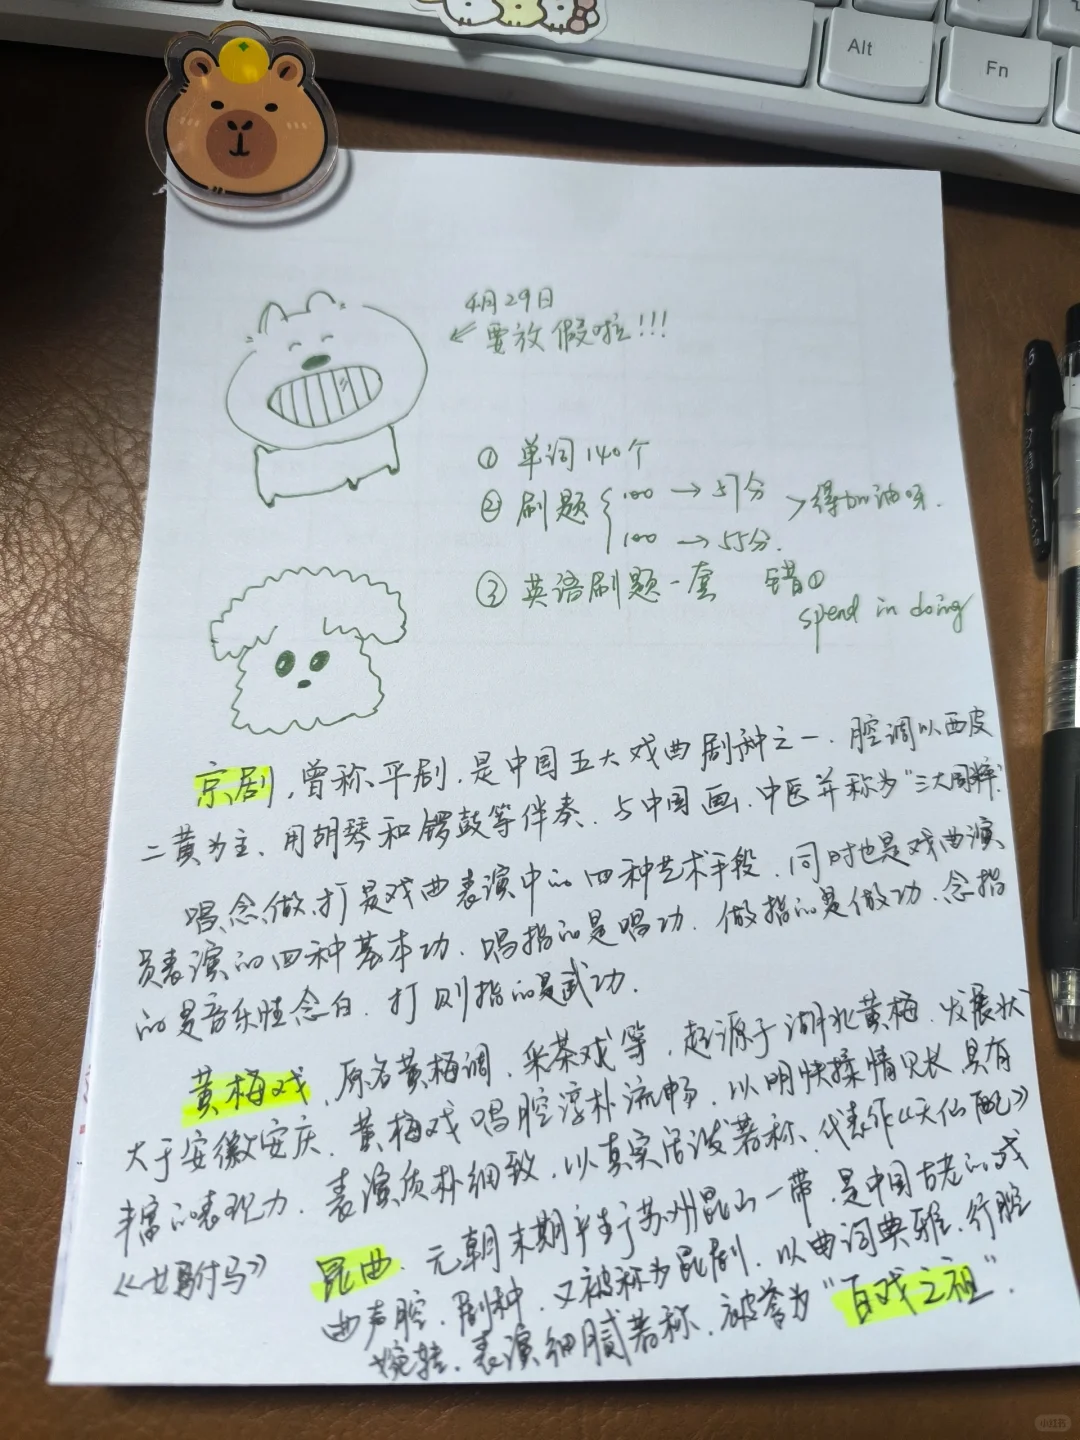 Alt
Fn
4月29日
要放假啦!!!
① 单词140个
② 刷题 100 → 57分
100 → 55分.
>得加油呀.
③ 英语刷题一套 错①
spend in doing
京剧,曾称平剧,是中国五大戏曲剧种之一.腔调以西皮
二黄为主、用胡琴和锣鼓等伴奏、与中国画、中医并称为"三大国粹".
唱、念、做、打是戏曲表演中的四种艺术手段,同时也是戏曲演
员表演的四种基本功.唱指的是唱功.做指的是做功.念指
的是音乐性念白.打则指的是武功.
黄梅戏,原名黄梅调,采茶戏等,起源于湖北黄梅,发展状
大于安徽安庆.黄梅戏唱腔淳朴流畅,以明快抒情见长,具有
丰富的表现力.表演质朴细致,以真实活泼著称、代表作《天仙配》
《女驸马》
昆曲,元朝末期产生于苏州昆山一带,是中国古老的戏
曲声腔、剧种,又被称为昆剧.以曲词典雅、行腔
婉转、表演细腻著称,被誉为"百戏之祖".
小红书